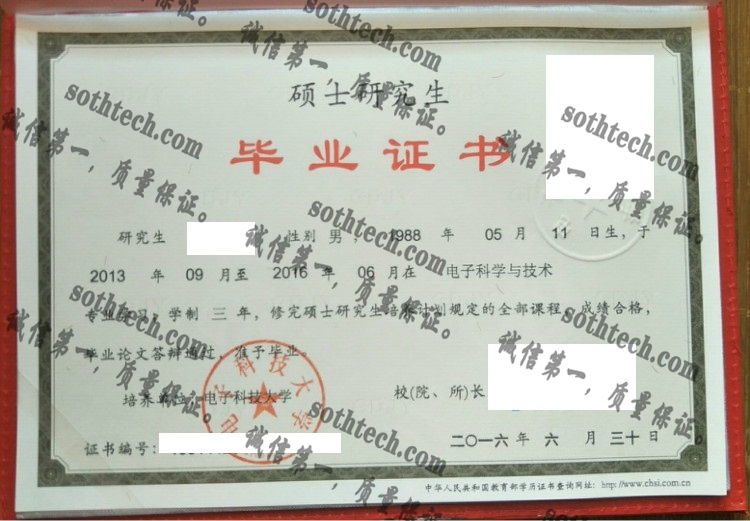 硕士研究生
毕业证书
研究生 性别 男, 1988 年 05 月 11 日生,于
2013 年 09 月至 2016 年 06 月在 电子科学与技术
专业学习,学制 三 年,修完硕士研究生培养计划规定的全部课程,成绩合格,
毕业论文答辩通过,准予毕业。
培养单位:电子科技大学 校(院、所)长
电子科技大学
证书编号:
二〇一六年 六 月 三十日
中华人民共和国教育部学历证书查询网址:http://www.chsi.com.cn
sothtech.com
诚信第一,质量保证。
sothtech.com
诚信第一,质量保证。
sothtech.com
诚信第一,质量保证。
sothtech.com
诚信第一,质量保证。
sothtech.com
诚信第一,质量保证。
sothtech.com
诚信第一,质量保证。
sothtech.com
诚信第一,质量保证。